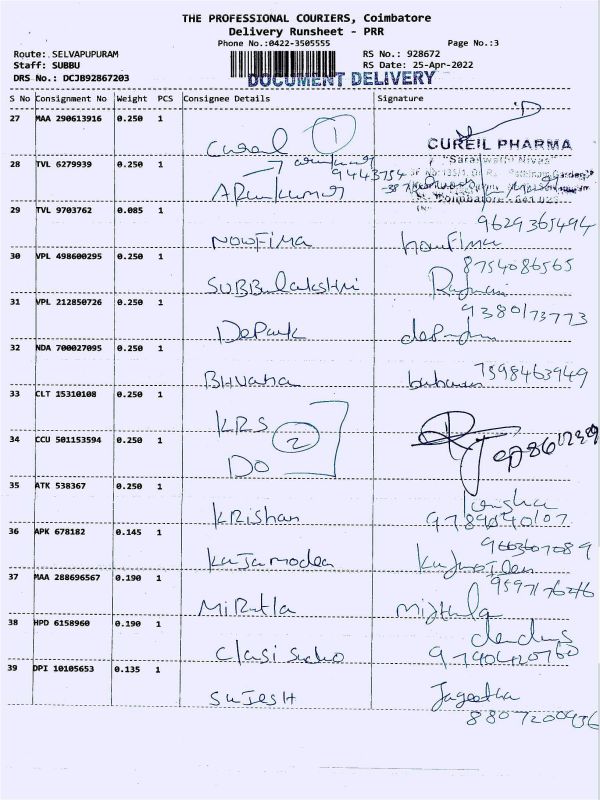 THE PROFESSIONAL COURIERS, Coimbatore
Delivery Runsheet - PRR
Phone No.:0422-3505555
Page No.:3
Route: SELVAPUPURAM
RS No.: 928672
Staff: SUBBU
RS Date: 25-Apr-2022
DRS No.: DCJB92867203
DOCUMENT DELIVERY
S No Consignment No Weight PCS Consignee Details Signature
27 MAA 290613916 0.250 1
Cureil 1
CUREIL PHARMA
"Saraswathi Nivas"
28 TVL 6279939 0.250 1
Arunkumar
9443754
Coimbatore - 641 023
29 TVL 9703762 0.085 1
9629365494
Nowfima nowfima
30 VPL 498600295 0.250 1
8754086565
Subbulakshmi
31 VPL 212850726 0.250 1
9380173773
Depak
32 NDA 700027095 0.250 1
7598463949
Bhvana
33 CLT 15310108 0.250 1
KRS
2
34 CCU 501153594 0.250 1
DO
35 ATK 538367 0.250 1
Krishan
9789040107
36 APK 678182 0.145 1
Kajamodeen
37 MAA 288696567 0.190 1
9597176276
Mirutla
38 HPD 6158960 0.190 1
9790420760
39 DPI 10105653 0.135 1
Sujesh Jageetha
8807200936